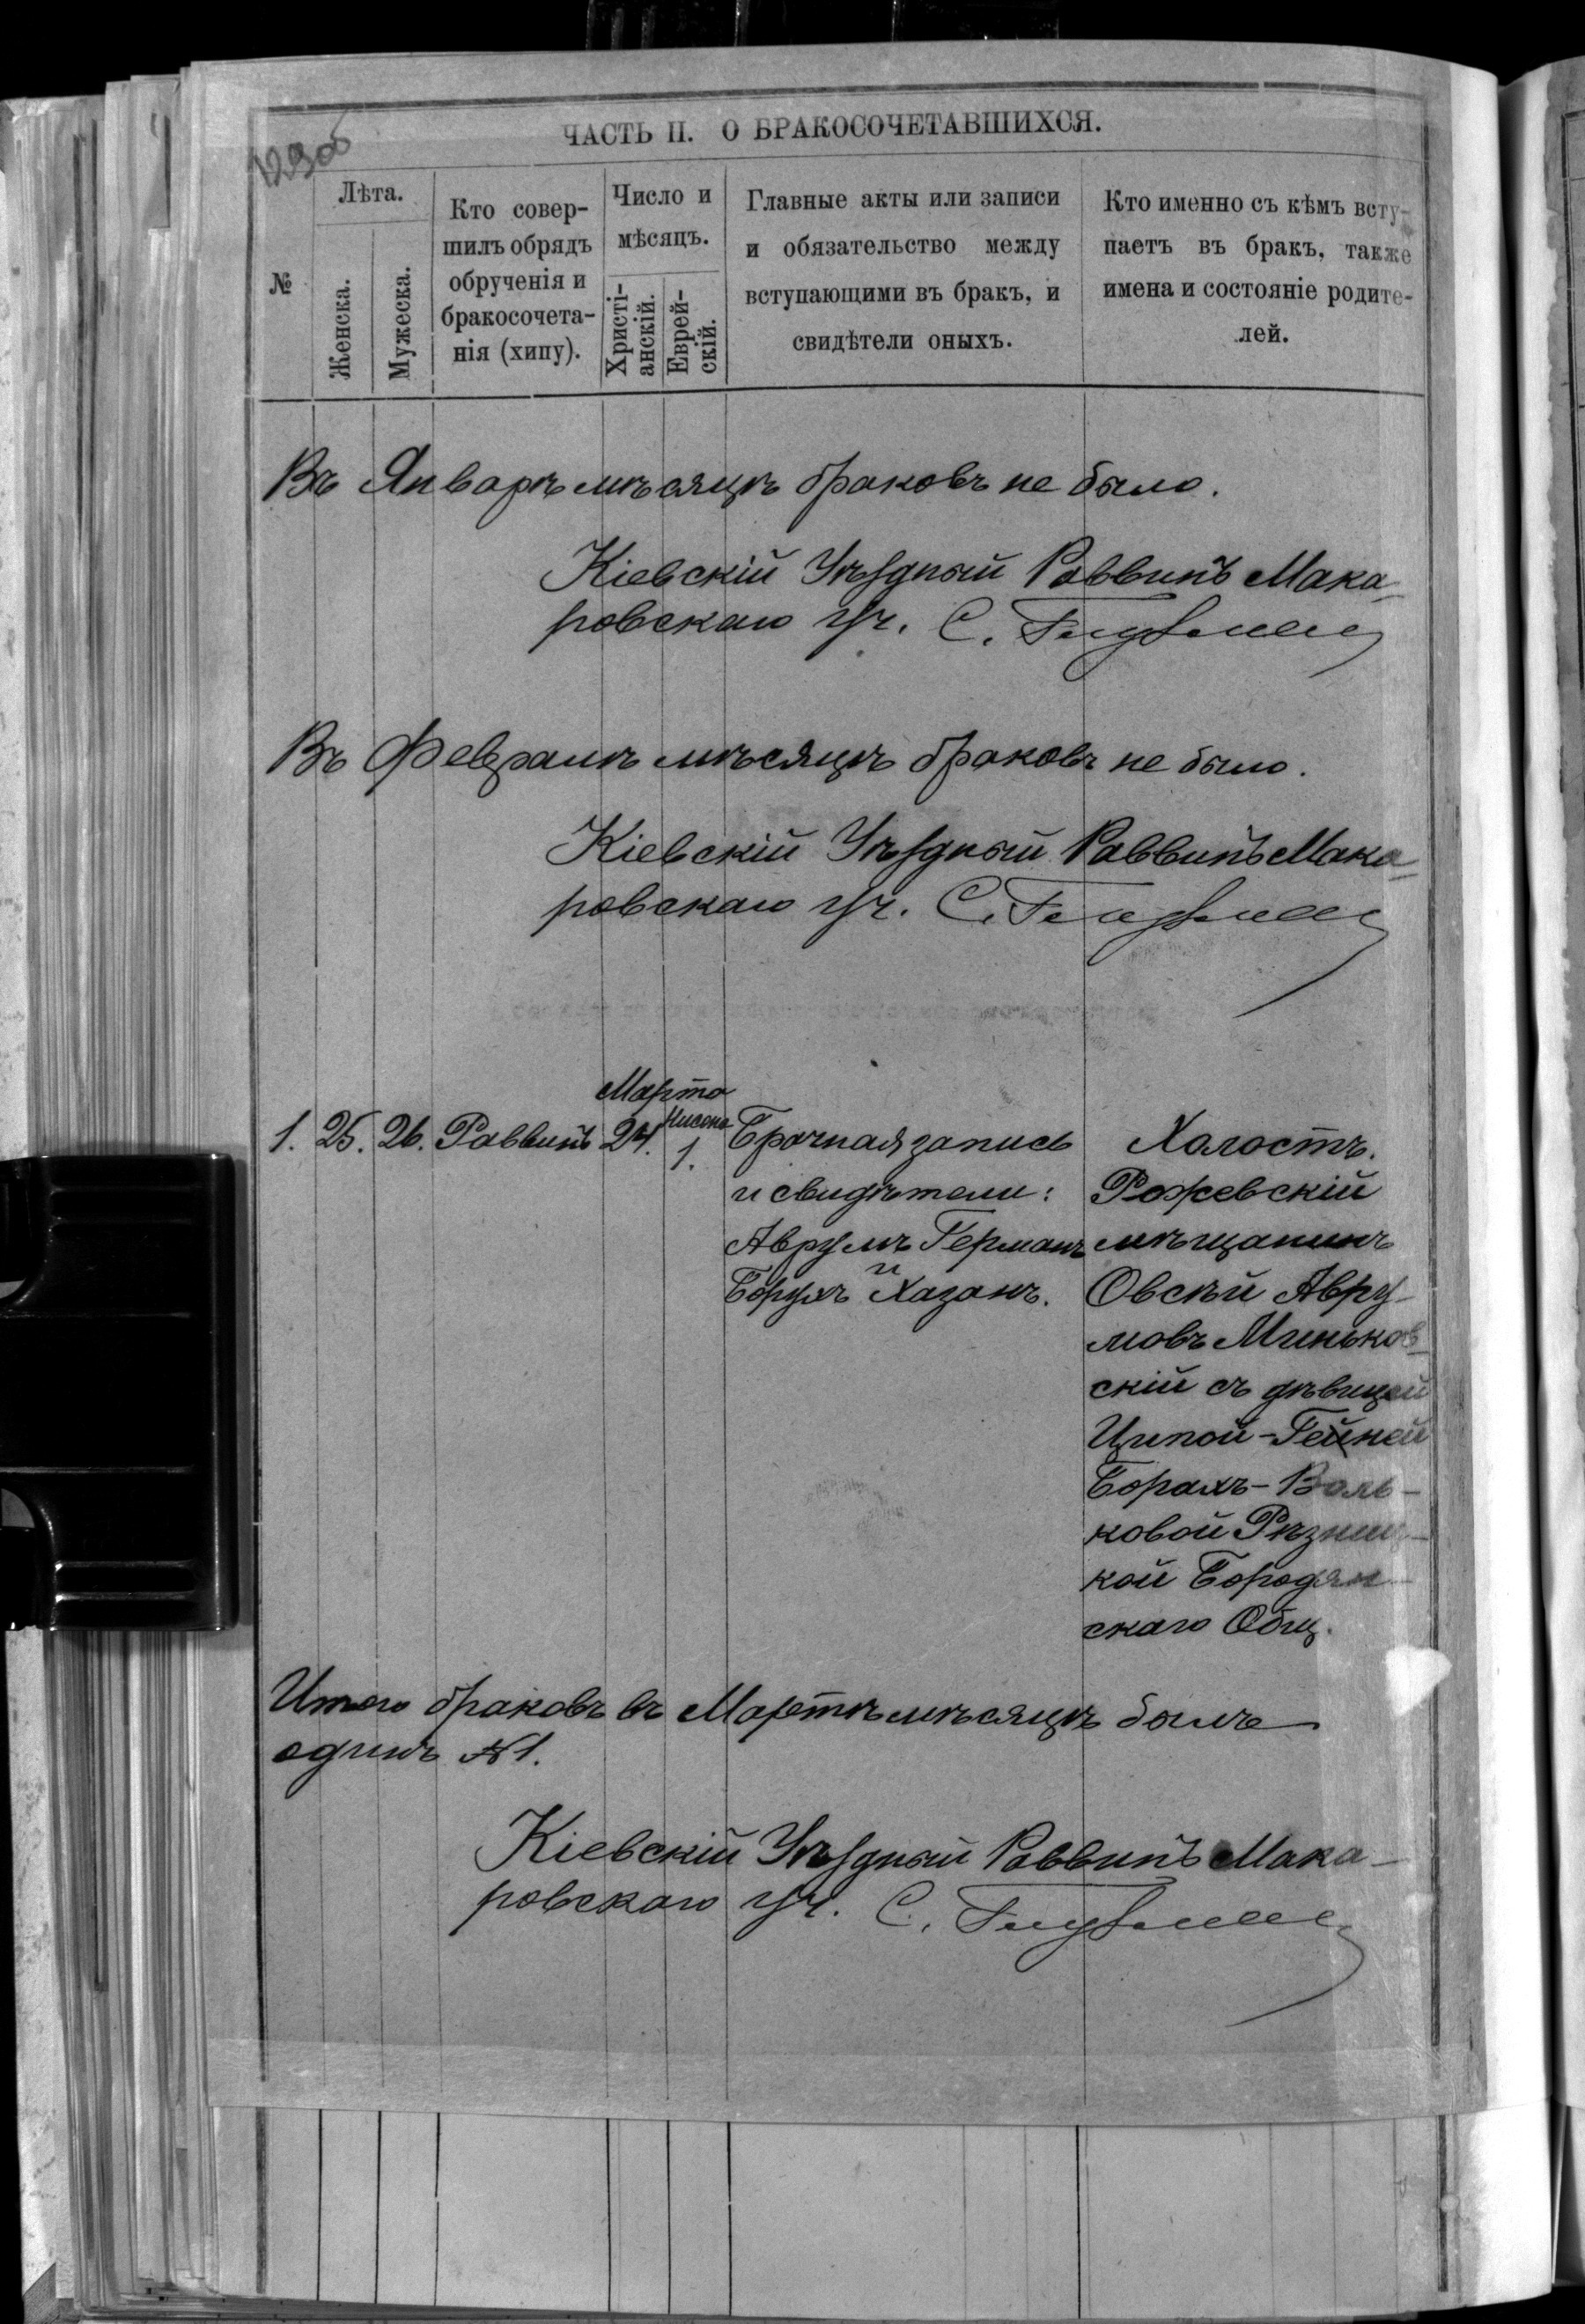 129об
ЧАСТЬ II. О БРАКОСОЧЕТАВШИХСЯ.
№
Лѣта.
Женска.
Мужеска.
Кто совер-
шилъ обрядъ
обрученія и
бракосочета-
нія (хипу).
Число и
мѣсяцъ.
Христі-
анскій.
Еврей-
скій.
Главные акты или записи
и обязательство между
вступающими въ бракъ, и
свидѣтели оныхъ.
Кто именно съ кѣмъ всту-
паетъ въ бракъ, также
имена и состояніе родите-
лей.
Въ Январѣ мѣсяцѣ браковъ не было.
Кіевскій Уѣздный Раввинъ Мака-
ровскаго уч. С.
Въ Февралѣ мѣсяцѣ браковъ не было.
Кіевскій Уѣздный Раввинъ Мака-
ровскаго уч. С.
1. 25. 26. Раввинъ
Марта
24.
Нисона
1.
Брачная запись
и свидѣтели:
Аврумъ Германъ
и
Борухъ Хазанъ.
Холостъ.
Рожевскій
мѣщанинъ
Овсѣй Авру-
мовъ Миньков-
скій съ дѣвицей
Ципой-Гейней
Борахъ-Воль-
ковой Рѣзниц-
кой Бородян-
скаго Общ.
Итого браковъ въ Мартѣ мѣсяцѣ былъ
одинъ №1.
Кіевскій Уѣздный Раввинъ Мака-
ровскаго уч. С.